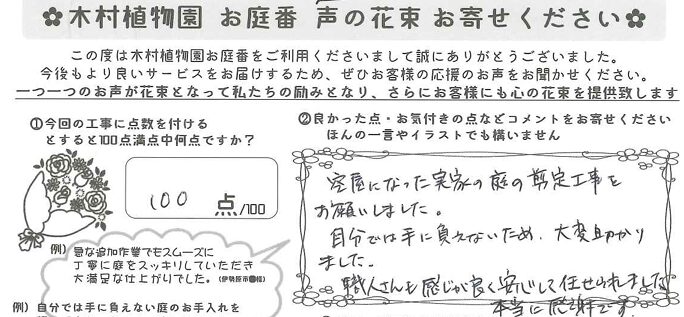 ✿木村植物園 お庭番 声の花束 お寄せください✿
この度は木村植物園お庭番をご利用くださいまして誠にありがとうございました。
今後もより良いサービスをお届けするため、ぜひお客様の応援のお声をお聞かせください。
一つ一つのお声が花束となって私たちの励みとなり、さらにお客様にも心の花束を提供致します
①今回の工事に点数を付ける
とすると100点満点中何点ですか?
100 点/100
例) 急な追加作業でもスムーズに
丁寧に庭をスッキリしていただき
大満足な仕上がりでした。(伊勢原市 様)
例) 自分では手に負えない庭のお手入れを
②良かった点・お気付きの点などコメントをお寄せください
ほんの一言やイラストでも構いません
空屋になった実家の庭の剪定工事を
お願いしました。
自分では手に負えないため、大変助かり
ました。
職人さんも感じが良く安心して任せられました
本当に感謝です。